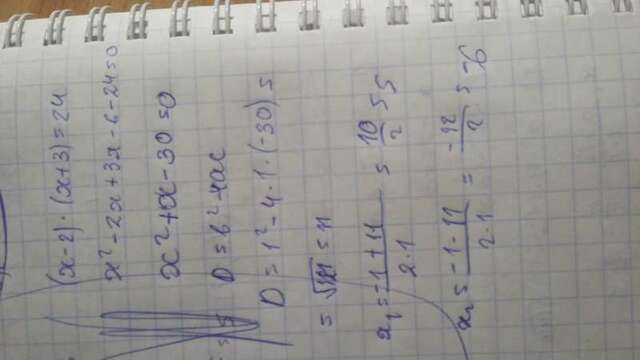 (x-2)·(x+3)=24
x²-2x+3x-6-24=0
x²+x-30=0
D=b²-4ac
D=1²-4·1·(-30)=
=√121=11
x₁=(-1+11)/(2·1)=10/2=5
x₂=(-1-11)/(2·1)=-12/2=-6